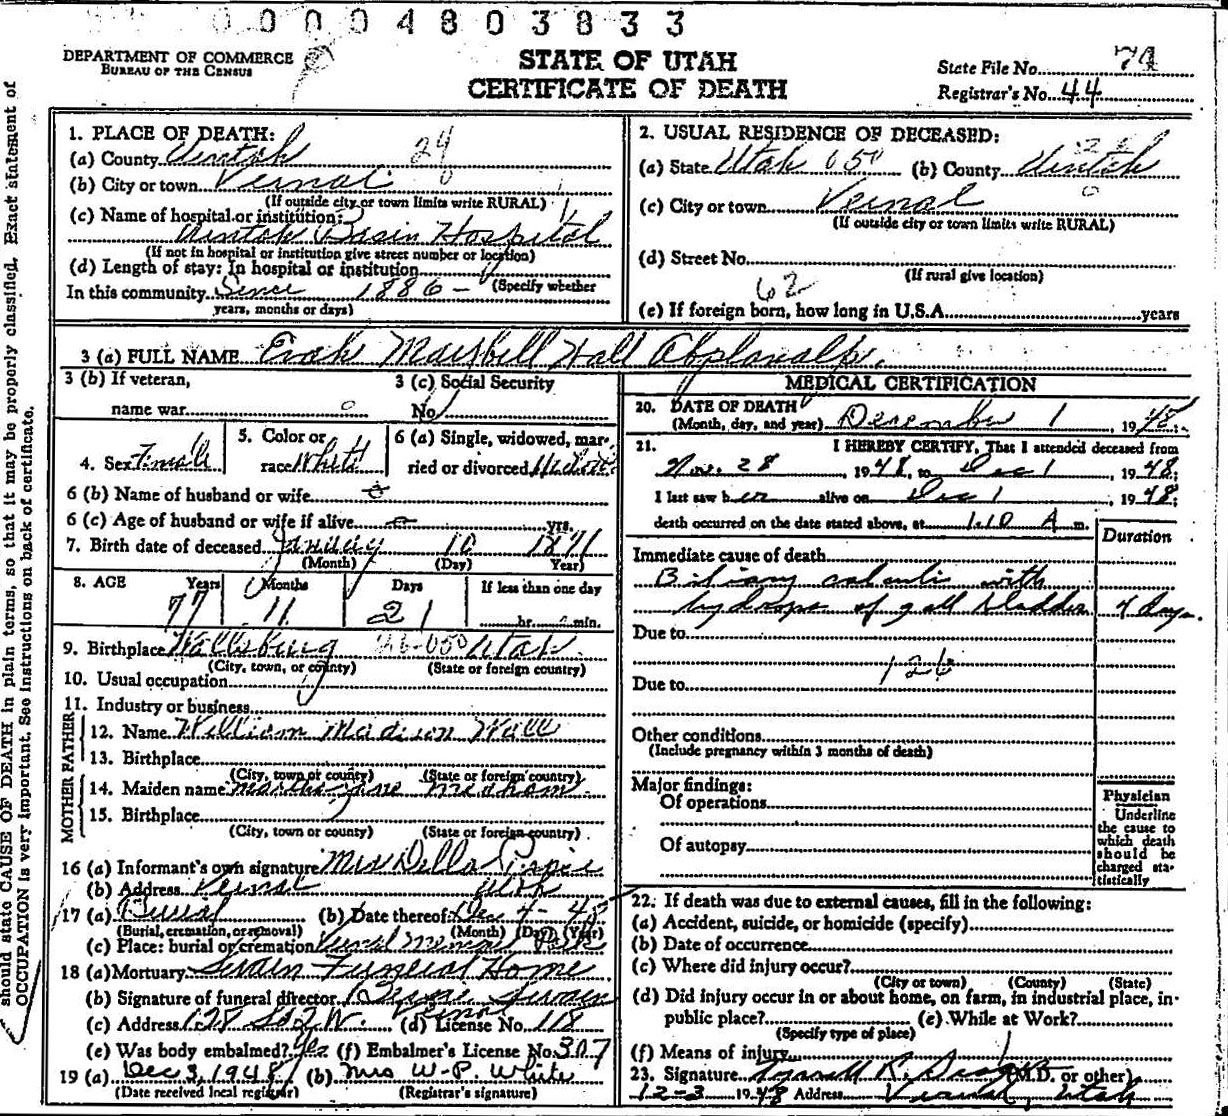 00004803833
DEPARTMENT OF COMMERCE
BUREAU OF THE CENSUS
STATE OF UTAH
CERTIFICATE OF DEATH
State File No. 74
Registrar's No. 44
should state CAUSE OF DEATH in plain terms, so that it may be properly classified. Exact statement of
OCCUPATION is very important. See instructions on back of certificate.
1. PLACE OF DEATH:
(a) County Uintah 24
(b) City or town Vernal 0
(If outside city or town limits write RURAL)
(c) Name of hospital or institution:
Uintah Basin Hospital
(If not in hospital or institution give street number or location)
(d) Length of stay: In hospital or institution
(Specify whether
In this community Since 1886 -
years, months or days)
2. USUAL RESIDENCE OF DECEASED:
(a) State Utah 050 (b) County Uintah
(c) City or town Vernal 0
(If outside city or town limits write RURAL)
(d) Street No.
(If rural give location)
62
(e) If foreign born, how long in U.S.A. years
3 (a) FULL NAME Maybell Wall Abplanalp.
3 (b) If veteran,
name war
3 (c) Social Security
No.
4. Sex Female
5. Color or
race White
6 (a) Single, widowed, married or divorced
6 (b) Name of husband or wife
6 (c) Age of husband or wife if alive yrs.
7. Birth date of deceased January 10 1871
(Month) (Day) Year)
8. AGE Years Months Days If less than one day
77 11 21 hr. min.
9. Birthplace Wallsburg 26-050 Utah
(City, town, or county) (State or foreign country)
10. Usual occupation
11. Industry or business
FATHER
12. Name William Madison Wall
13. Birthplace
(City, town or county) (State or foreign country)
MOTHER
14. Maiden name Martha Jane
15. Birthplace
(City, town or county) (State or foreign country)
16 (a) Informant's own signature Mrs Della
(b) Address Vernal Utah
17 (a) Burial (b) Date thereof: Dec 4 - 48
(Burial, cremation, or removal) (Month) (Day) (Year)
(c) Place: burial or cremation Vernal Memorial Park
18 (a) Mortuary Swain Funeral Home
(b) Signature of funeral director Swain
Vernal
(c) Address 128 So 2 W. (d) License No. 118
(e) Was body embalmed? Yes (f) Embalmer's License No. 307
19 (a) Dec 3, 1948 (b) Mrs W. P. White
(Date received local registrar) (Registrar's signature)
MEDICAL CERTIFICATION
20. DATE OF DEATH
(Month, day, and year) December 1, 1948
21. I HEREBY CERTIFY, That I attended deceased from
Nov. 28, 1948, to Dec 1, 1948;
I last saw her alive on Dec 1, 1948;
death occurred on the date stated above, at 1:10 A m.
Duration
Immediate cause of death
Biliary calculi with
hydrops of gall bladder days
Due to
126
Due to
Other conditions
(Include pregnancy within 3 months of death)
Major findings:
Of operations
Of autopsy
Physician
Underline
the cause to
which death
should be
charged sta-
tistically
22. If death was due to external causes, fill in the following:
(a) Accident, suicide, or homicide (specify)
(b) Date of occurrence
(c) Where did injury occur?
(City or town) (County) (State)
(d) Did injury occur in or about home, on farm, in industrial place, in-
public place? (e) While at Work?
(Specify type of place)
(f) Means of injury
23. Signature R. (M.D. or other)
12-3 1948 Address Vernal, Utah